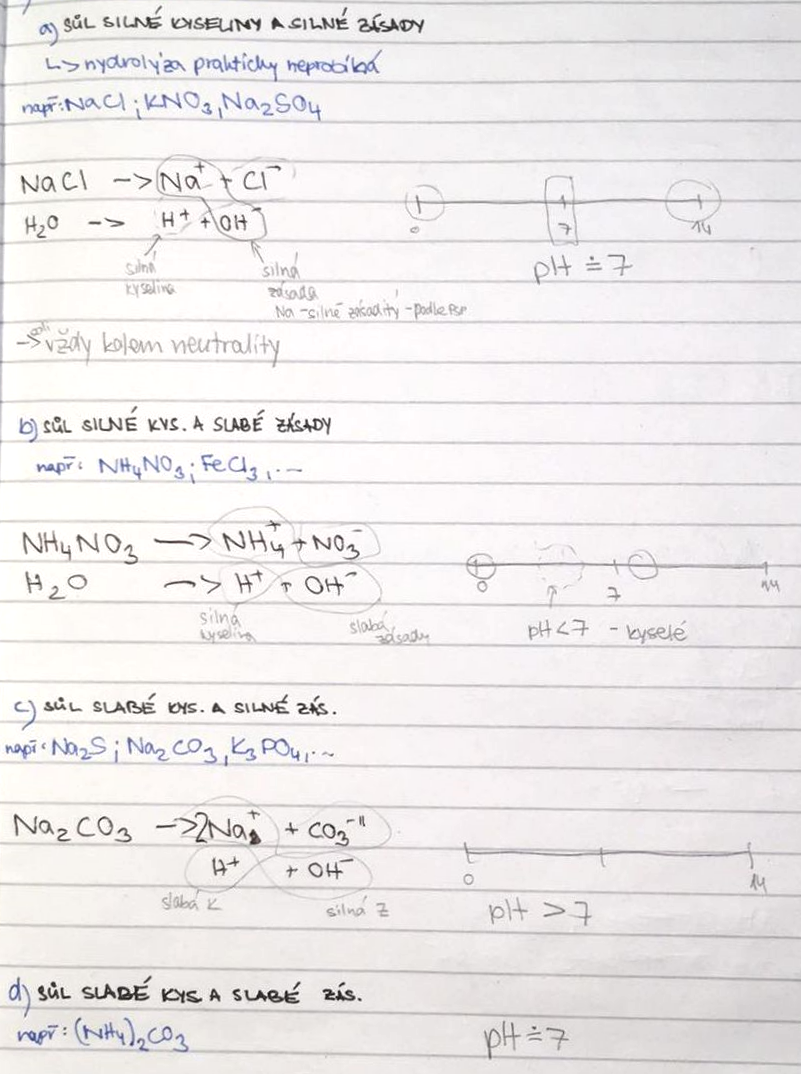 a) SŮL SILNÉ KYSELINY A SILNÉ ZÁSADY
↳ hydrolýza prakticky neprobíhá
např: NaCl ; KNO₃, Na₂SO₄
NaCl -> Na⁺ + Cl⁻
H₂O -> H⁺ + OH⁻
0 7 14
silná kyselina
silná zásada
pH ≐ 7
Na - silně zásaditý - podle PSP
-> vždy kolem neutrality
b) SŮL SILNÉ KYS. A SLABÉ ZÁSADY
např: NH₄NO₃ ; FeCl₃, ...
NH₄NO₃ -> NH₄⁺ + NO₃⁻
H₂O -> H⁺ + OH⁻
0 7 14
silná kyselina
slabá zásady
pH < 7 - kyselé
c) SŮL SLABÉ KYS. A SILNÉ ZÁS.
např: Na₂S ; Na₂CO₃, K₃PO₄, ...
Na₂CO₃ -> 2Na⁺ + CO₃⁻ᴵᴵ
H⁺ + OH⁻
0 14
slabá K
silná Z
pH > 7
d) SŮL SLABÉ KYS A SLABÉ ZÁS.
např: (NH₄)₂CO₃
pH ≐ 7